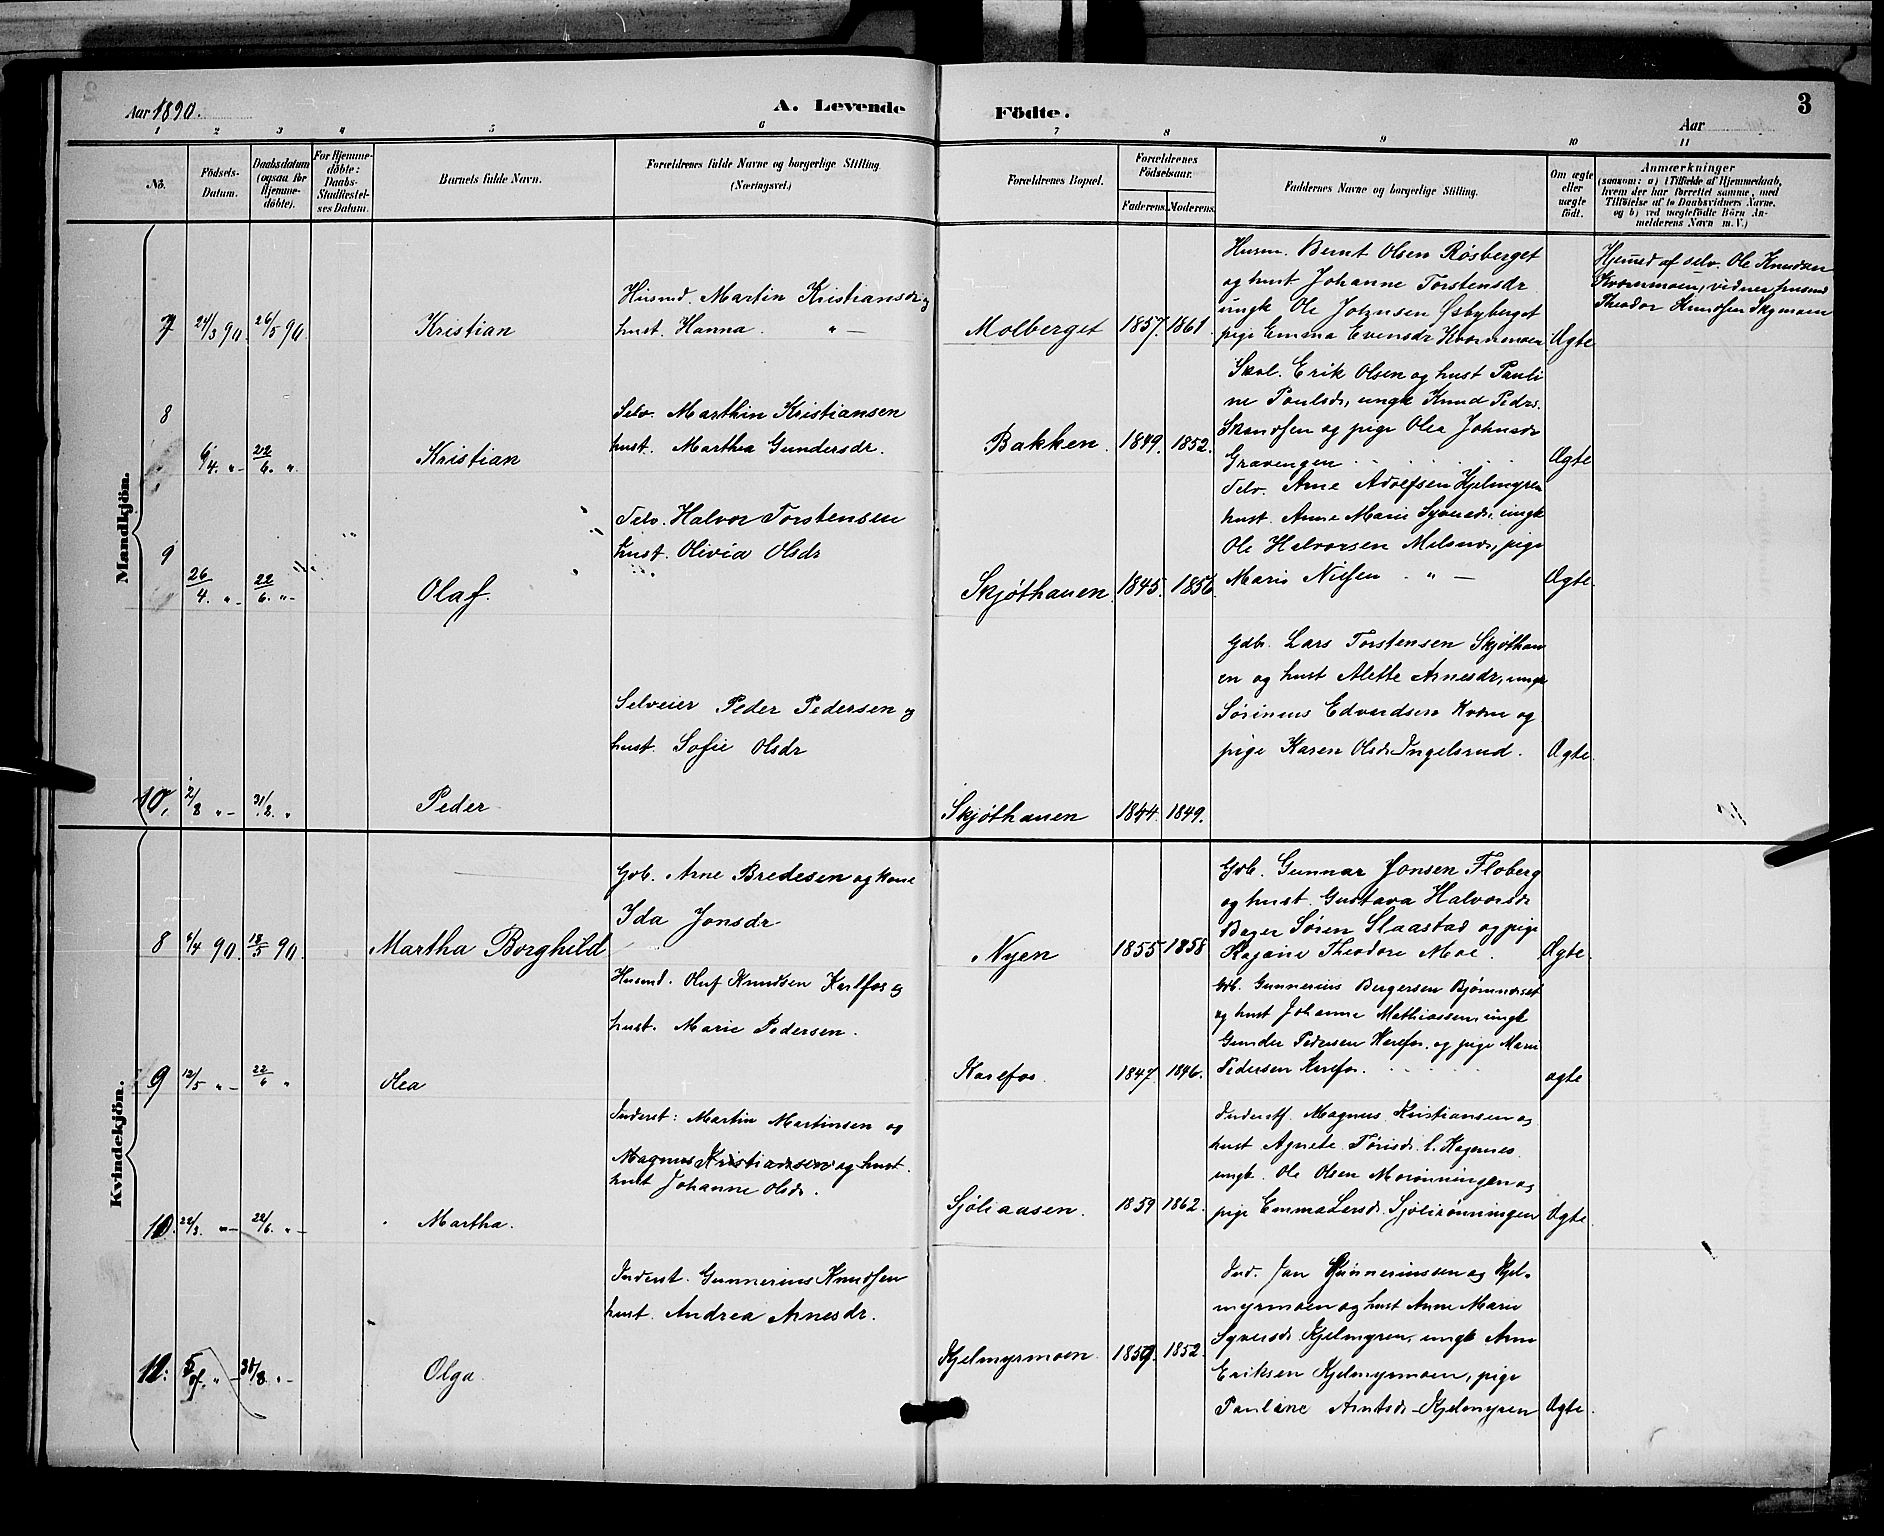 Aar 1890.
A. Levende Födte.
3
Aar
1 2 3 4 5 6 7 8 9 10 11
No.
Födsels-Datum.
Daabsdatum (ogsaa for Hjemmedöbte).
For Hjemmedöbte: Daabs-Stadfæstelses Datum.
Barnets fulde Navn.
Forældrenes fulde Navne og borgerlige Stilling.
(Næringsvei.)
Forældrenes Bopæl.
Forældrenes Födselsaar.
Faderens. Moderens.
Faddernes Navne og borgerlige Stilling.
Om ægte eller uægte födt.
Anmærkninger
(saasom: a) i Tilfælde af Hjemmedaab,
hvem der har forrettet samme, med
Tilföielse af to Daabsvidners Navne.
og b) ved uægtefödte Börn An-
melderens Navn m. V.)
Mandkjön.
7 24/3 90. 26/5 90.
Kristian
Husmd. Martin Kristiansen og
hust. Hanna. " —
Molberget 1857. 1861
Husm. Bernt Olsen Røsberget
og hust Johanne Torstensdr
ungk Ole Osbyberget
pige Emma Evensdr Kværnmoen
Ægte
Hjemd af selv. Ole Knudsen
Kværnmoen, vidner husmd
Theodor Knudsen Skymoen
8 6/4. " — 22/6. ".
Kristian
Selv. Marthin Kristiansen
hust. Marthea Gundersdr.
Bakken. 1849. 1852.
Erik Olsen og hust Pauli
ne Paulsdr, ungk Knud Peders.
og pige Olea Johnsdr
Gravengen
Ægte
9 26/4. " — 22/6. " —
Olaf.
Selv. Halvor Torstensen
hust. Olivia Olsdr
Skjøthauen. 1845. 1856.
Selv. Arne Adolfsen Kjelmyren
hust. Anne Marie Syversdr, ungk
Ole Halvorsen pige
Marie Nilsen. " —
Ægte.
10. 2/8 " — 31/8. "
Peder
Selveier Peder Pedersen og
hust. Sofie Olsdr
Skjøthauen 1844. 1849.
Gdb. Lars Torstensen Skjøthau
en og hust Alette Arnesdr, ungk
Sørinus Edvardsen Kværn og
pige Karen Olsdr Ingelsrud.
Ægte.
Kvindekjön.
8 4/4 90. 18/5 90.
Martha Borghild
Gdb. Arne Bredesen og kone
Ida Jonsdr
Nyen 1855 1858
Gdb. Gunnar Jonsen Floberg
og hust. Gustava Halvorsdr
Bager Søren Slaastad og pige
Kajane Theodore Moe.
Ægte.
9 12/5 " — 22/6 "
Olea
Husmd. Oluf Knudsen Karlfos og
hust. Marie Pedersen.
Karefos. 1847. 1846.
Gdb. Gunnerius Bergersen Bjørnneset
og hust Johanne Mathiassen, ungk
Gunder Pedersen Karefos, og pige Marie
Pedersen Karefos.
ægte
10. 22/3. " — 22/6. " —
Martha.
Inderst: Martin Martinsen og
Magnus Kristiansen og hust.
hust Johanne Olsdr.
Sjøliaasen. 1859 1862.
Inderst. Magnus Kristiansen og
hust Agnete
ungk. Ole Olsen Morønningen og
pige Emma Larsdr. Sjølirønningen
Ægte.
Olga.
Inderst. Gunnerius Knudsen
hust. Andrea Arnesdr.
Kjelmyrmoen. 1859. 1852.
Ind. Jan Gunneriussen og Kjel-
myrmoen og hust Anne Marie
Syversdr Kjelmyren, ungk Arne
Eriksen Kjelmyrmoen, pige
Pauline Arntsdr Kjelmyren
Ægte.